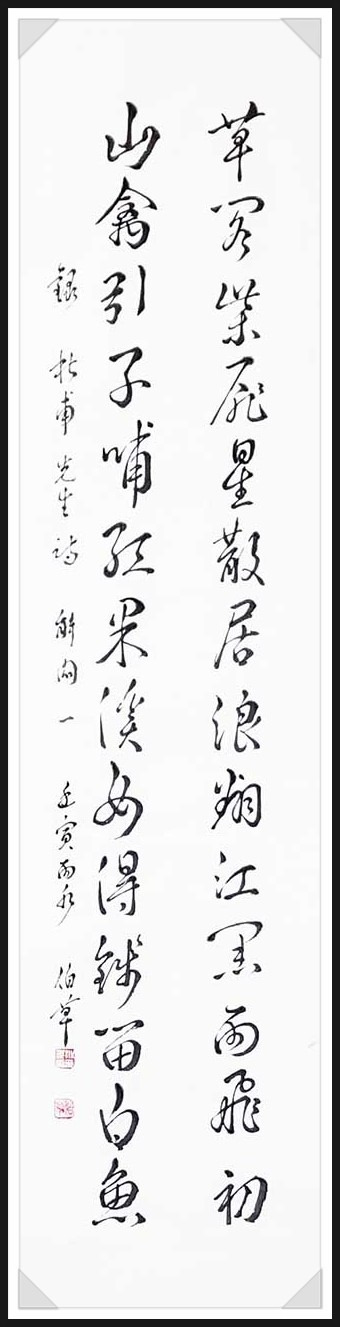 草閣柴扉星散居浪翻江黑雨飛初
山禽引子哺紅果溪女得錢留白魚
錄 杜甫先生詩 解悶一 壬寅雨水 伯草